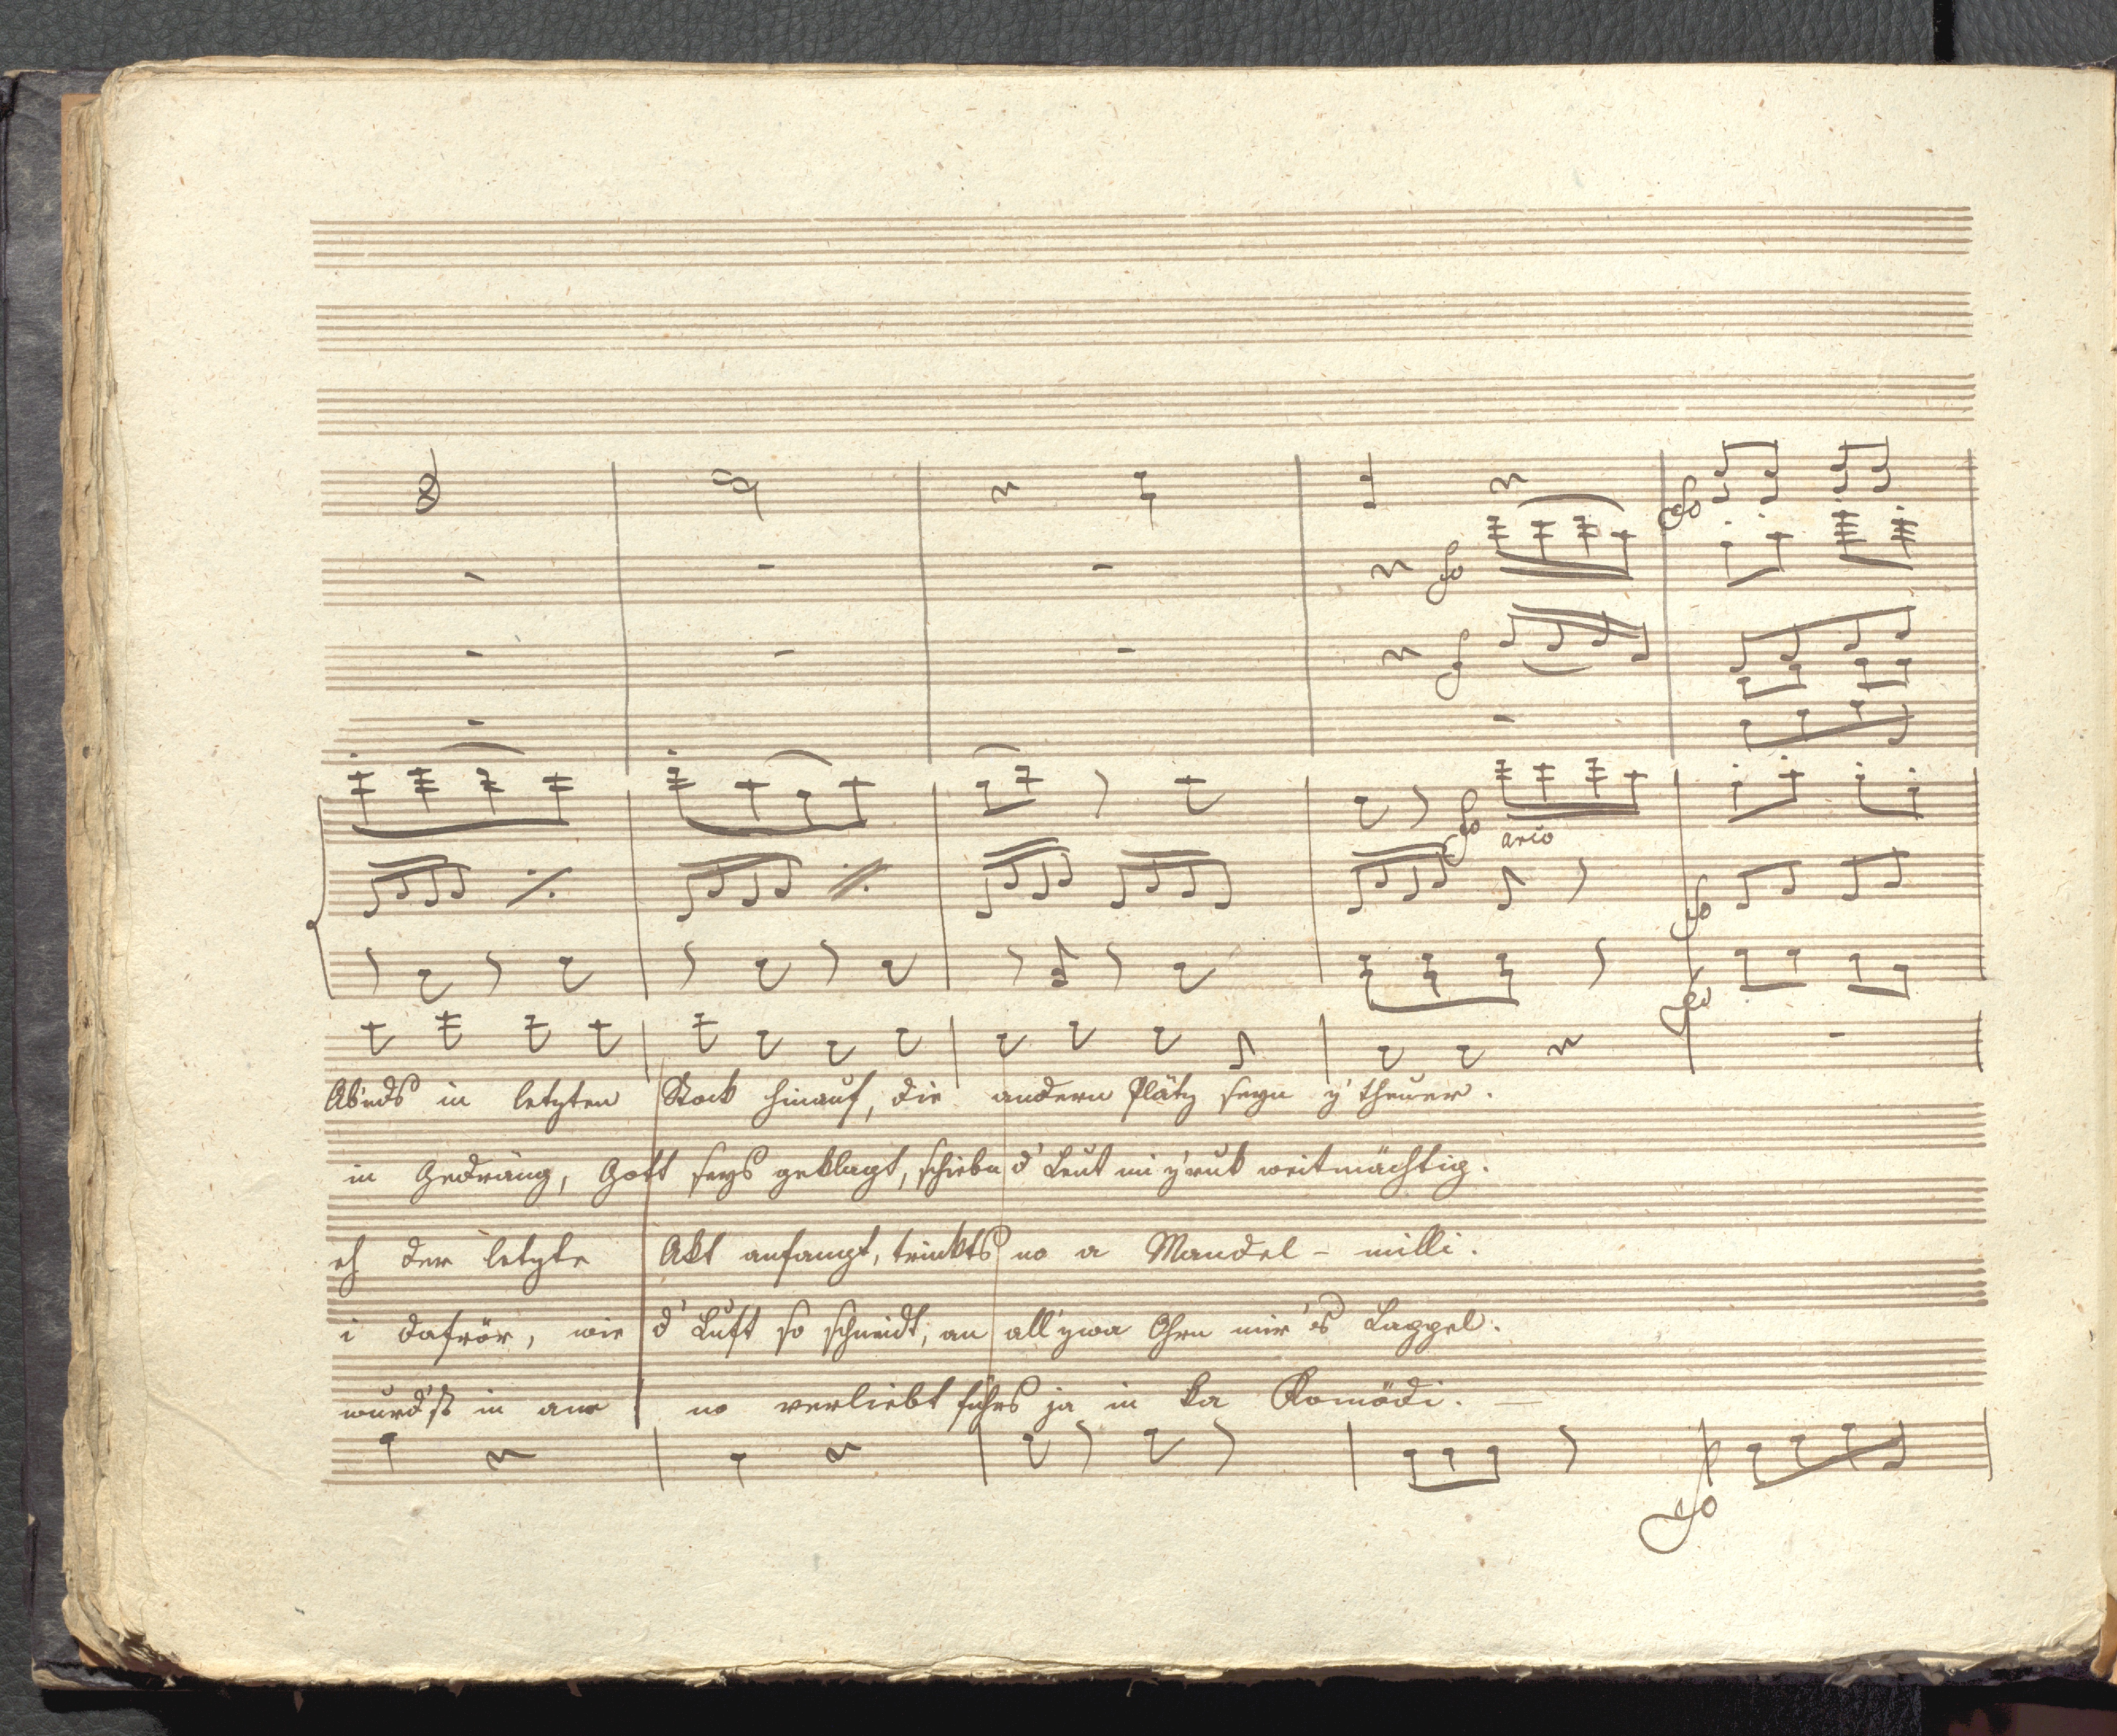 fo
fo
f
fo arco
fo
fo
Abnds in letzten Stock hinauf, die andern Plätz seyn z' theuer.
in Gedräng, Gott seys geklagt, schiebn d' Leut mi z'ruk weitmächtig.
eh der letzte Akt anfangt, trinkts no a Mandel - milli.
i dafrör, wie d' Luft so schneidt, an all' zwa Ohrn mir 's Lappel.
wurd'st in ane no verliebt führs ja in ka Komödi. —
fo